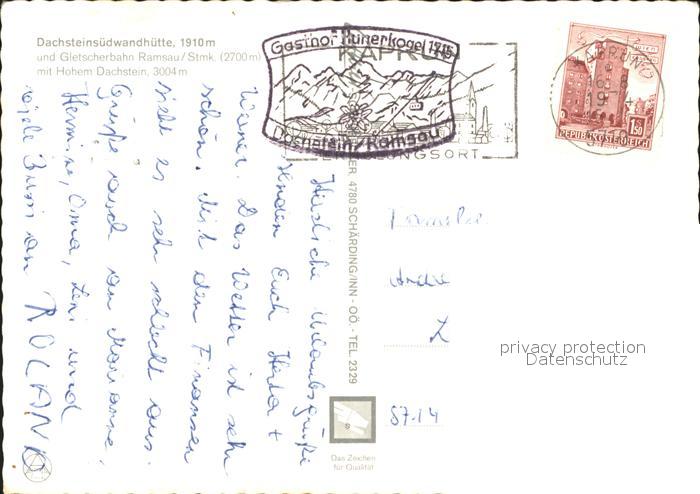 Dachsteinsüdwandhütte, 1910 m
und Gletscherbahn Ramsau/Stmk. (2700 m)
mit Hohem Dachstein, 3004 m
Gasthof Hunerkogel 1915
Dachstein/Ramsau
KAPRUN
REPUBLIK ÖSTERREICH
1.50
4780 SCHÄRDING/INN - OÖ. - TEL 2329
Herzliche Urlaubsgrüße
senden Euch Herta +
Werner. Das Wetter ist sehr
schön. Mit den Finanzen
sieht es sehr schlecht aus.
Grüße auch an Marianne,
Hermine, Oma, Leni und
viele Bussi an ROLAND
Familie
privacy protection
Datenschutz
Das Zeichen
für Qualität